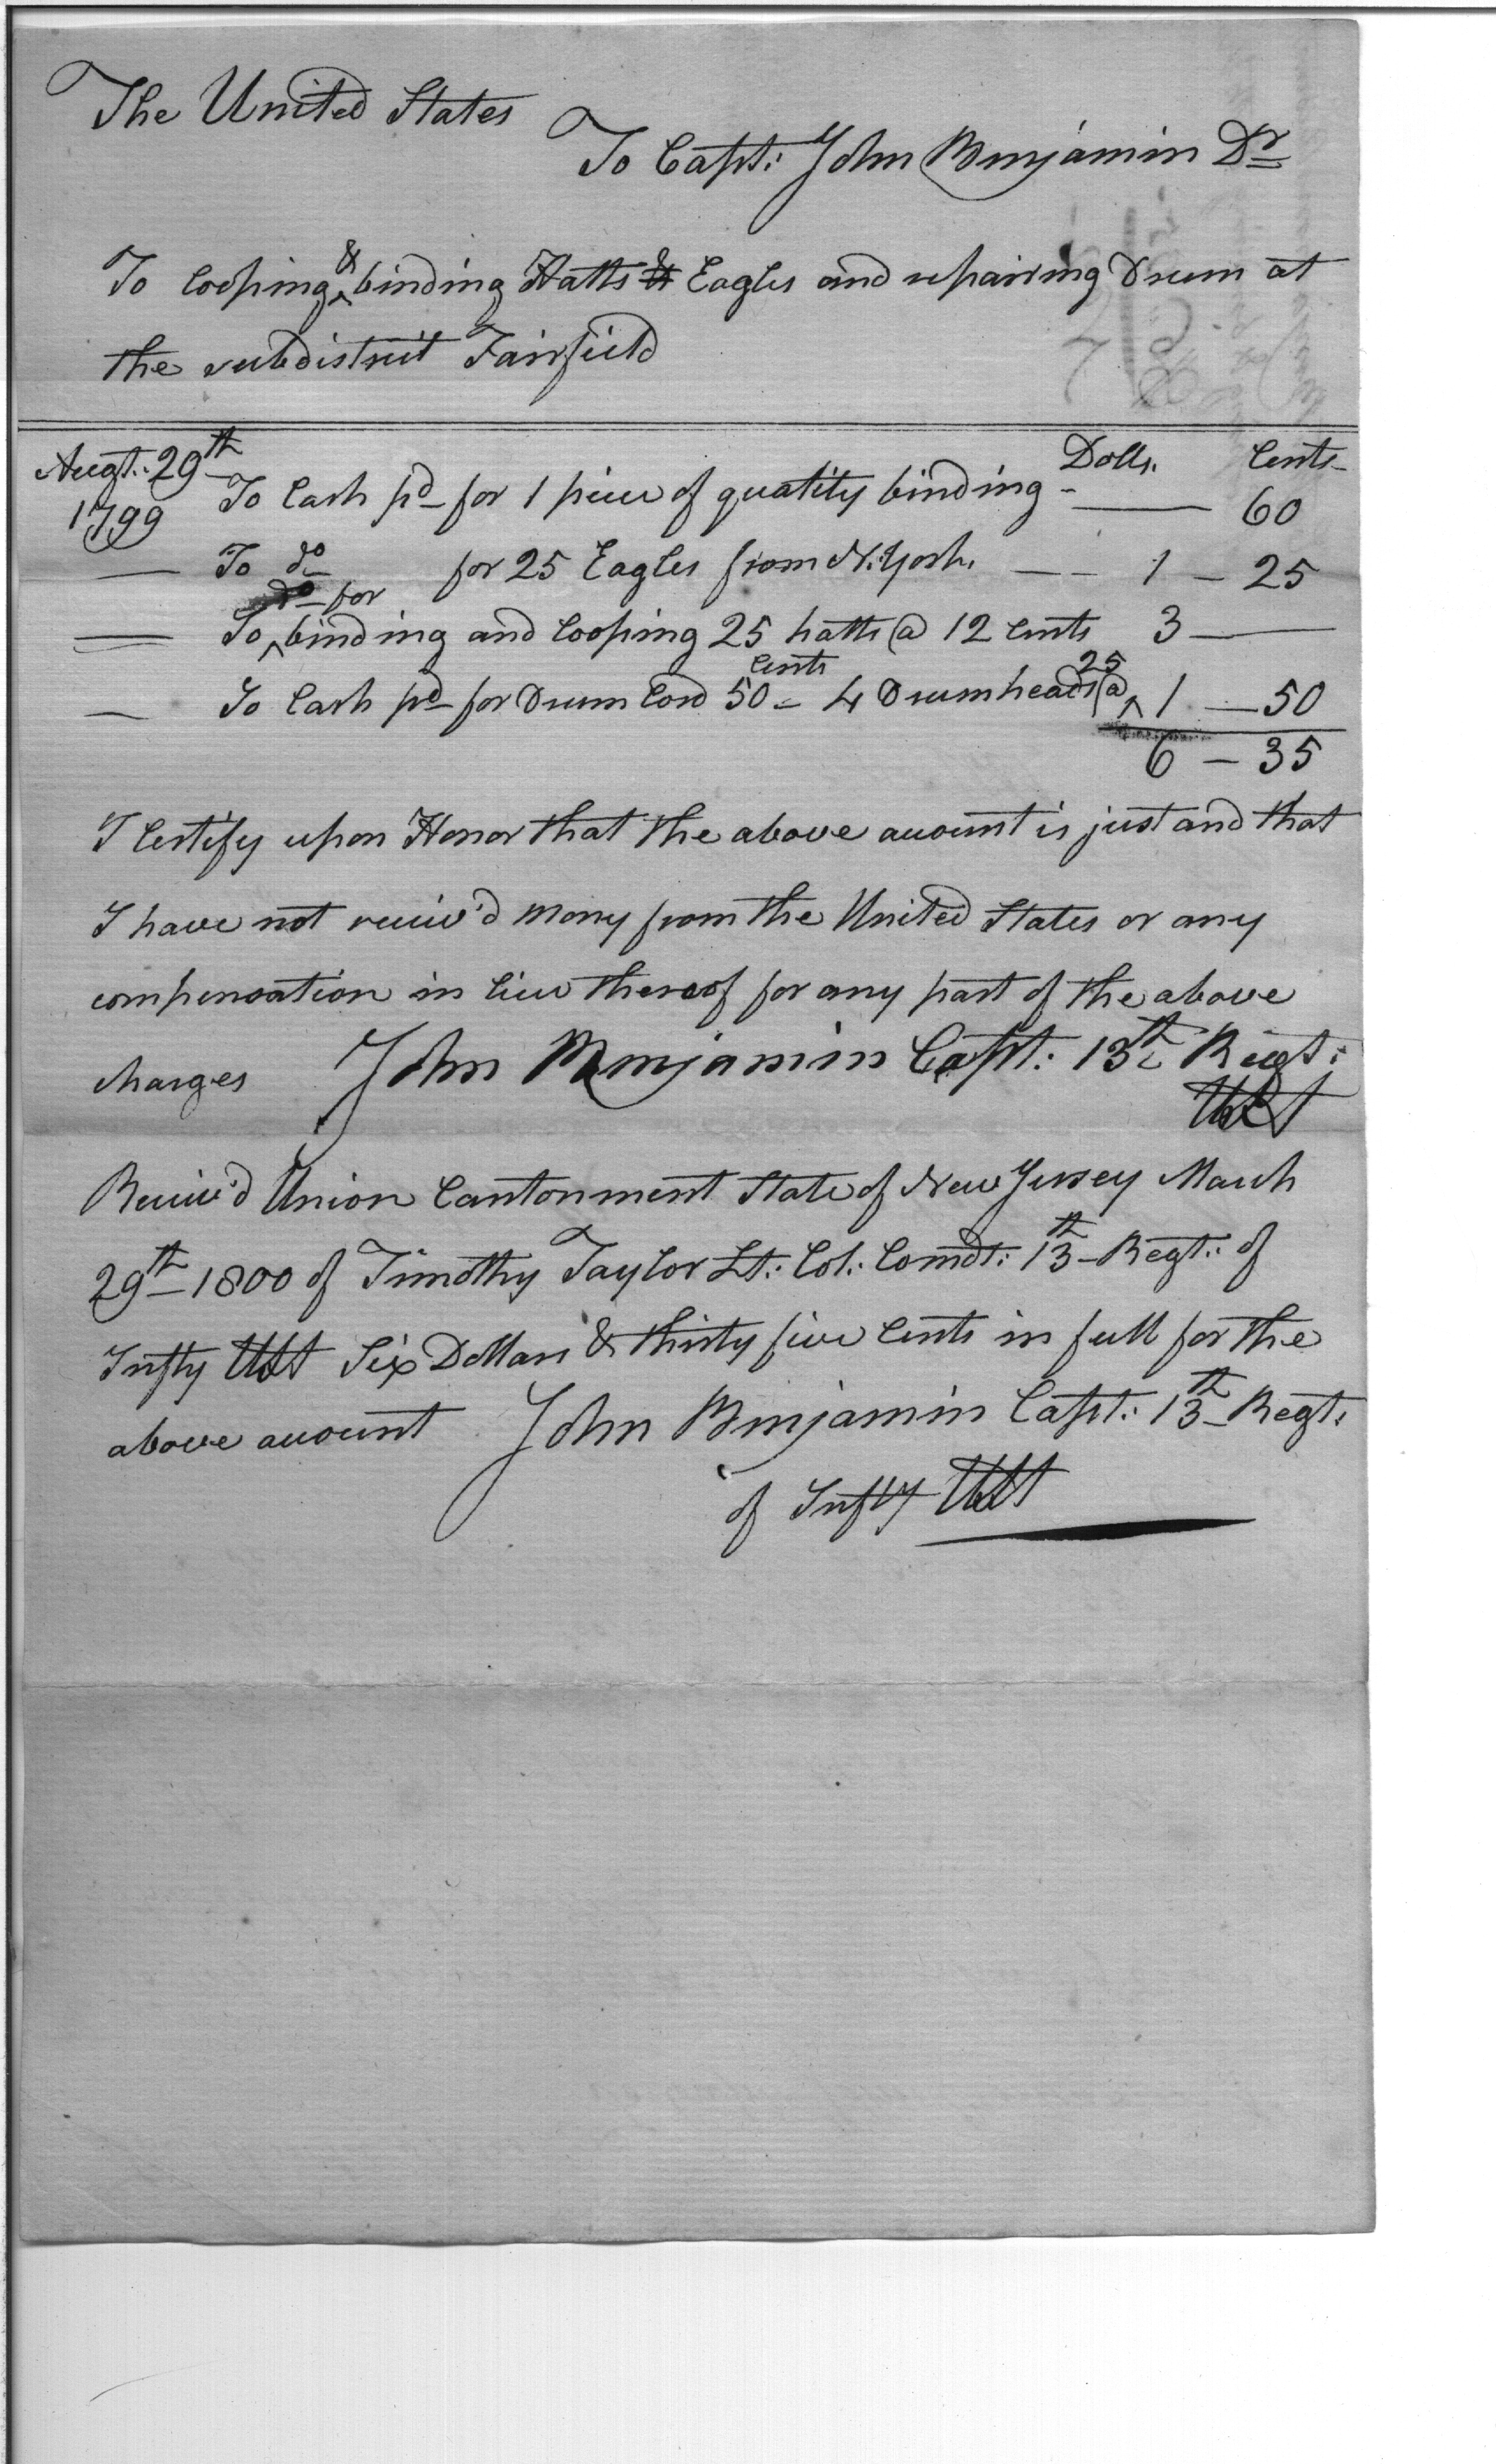 The United States
To Capt: John Benjamin Dr
To looping & binding Hatts & Eagles and repairing Drum at
the subdistrict Fairfield
Augt: 29th
1799
Dolls. Cents
To Cash pd for 1 piece of quality binding - 60
To do for 25 Eagles from N: York. 1 - 25
To do for binding and looping 25 hatts @ 12 Cents 3 -
To Cash pd for Drum Cord 50 Cents - 4 Drumheads @ 25 1 - 50
6 - 35
I Certify upon Honor that the above account is just and that
I have not receiv'd mony from the United States or any
compensation in lieu thereof for any part of the above
charges John Benjamin Capt: 13th Regt:
UStt
Receiv'd Union Cantonment State of New Jersey March
29th 1800 of Timothy Taylor Lt: Col: Comdt: 13th Regt: of
Infty UStt Six Dollars & thirty five Cents in full for the
above account John Benjamin Capt: 13th Regt:
of Infty UStt